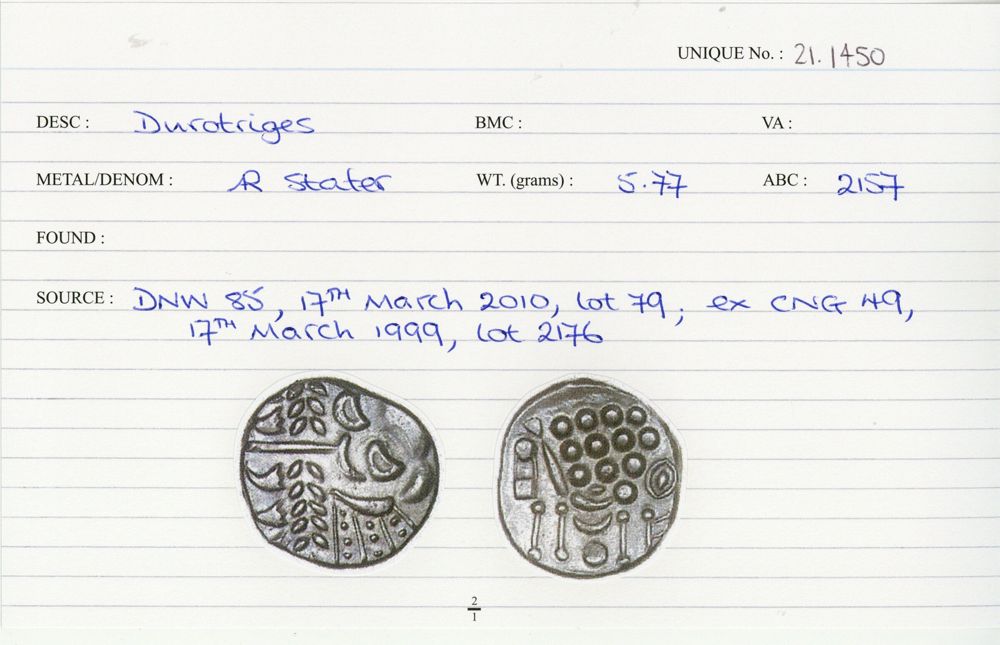 UNIQUE No. : 21.1450
DESC : Durotriges BMC : VA :
METAL/DENOM : AR Stater WT. (grams) : 5.77 ABC : 2157
FOUND :
SOURCE : DNW 85, 17TH March 2010, lot 79; ex CNG 49,
17TH March 1999, lot 2176
2
1